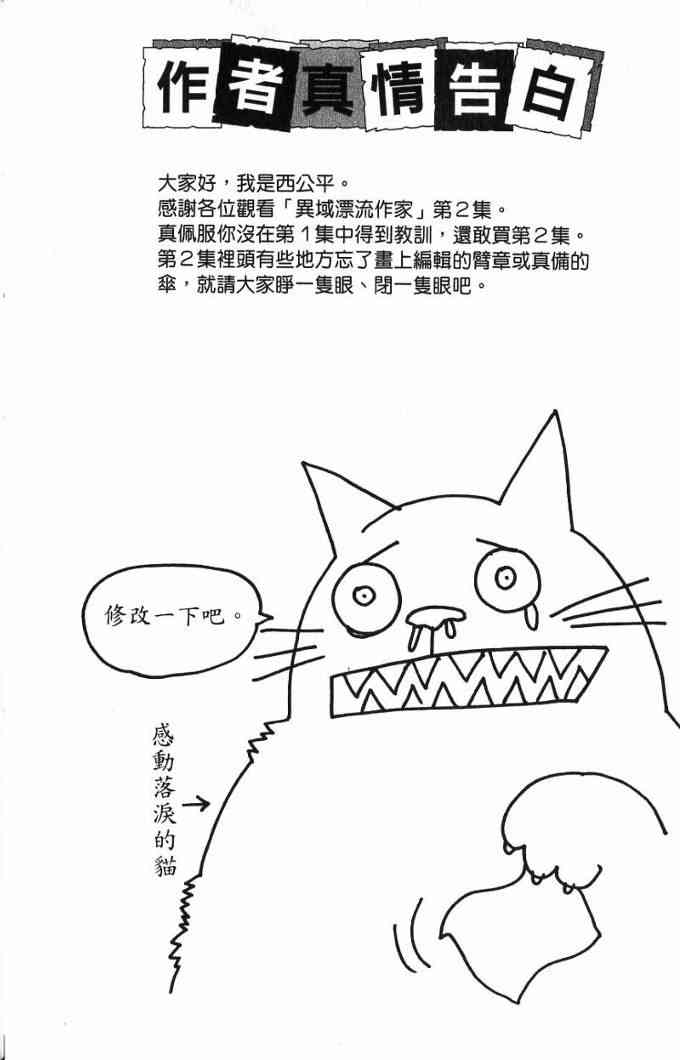 作者真情告白
大家好，我是西公平。
感謝各位觀看「異域漂流作家」第２集。
真佩服你沒在第１集中得到教訓，還敢買第２集。
第２集裡頭有些地方忘了畫上編輯的臂章或真備的
傘，就請大家睜一隻眼、閉一隻眼吧。
修改一下吧。
感動落淚的貓